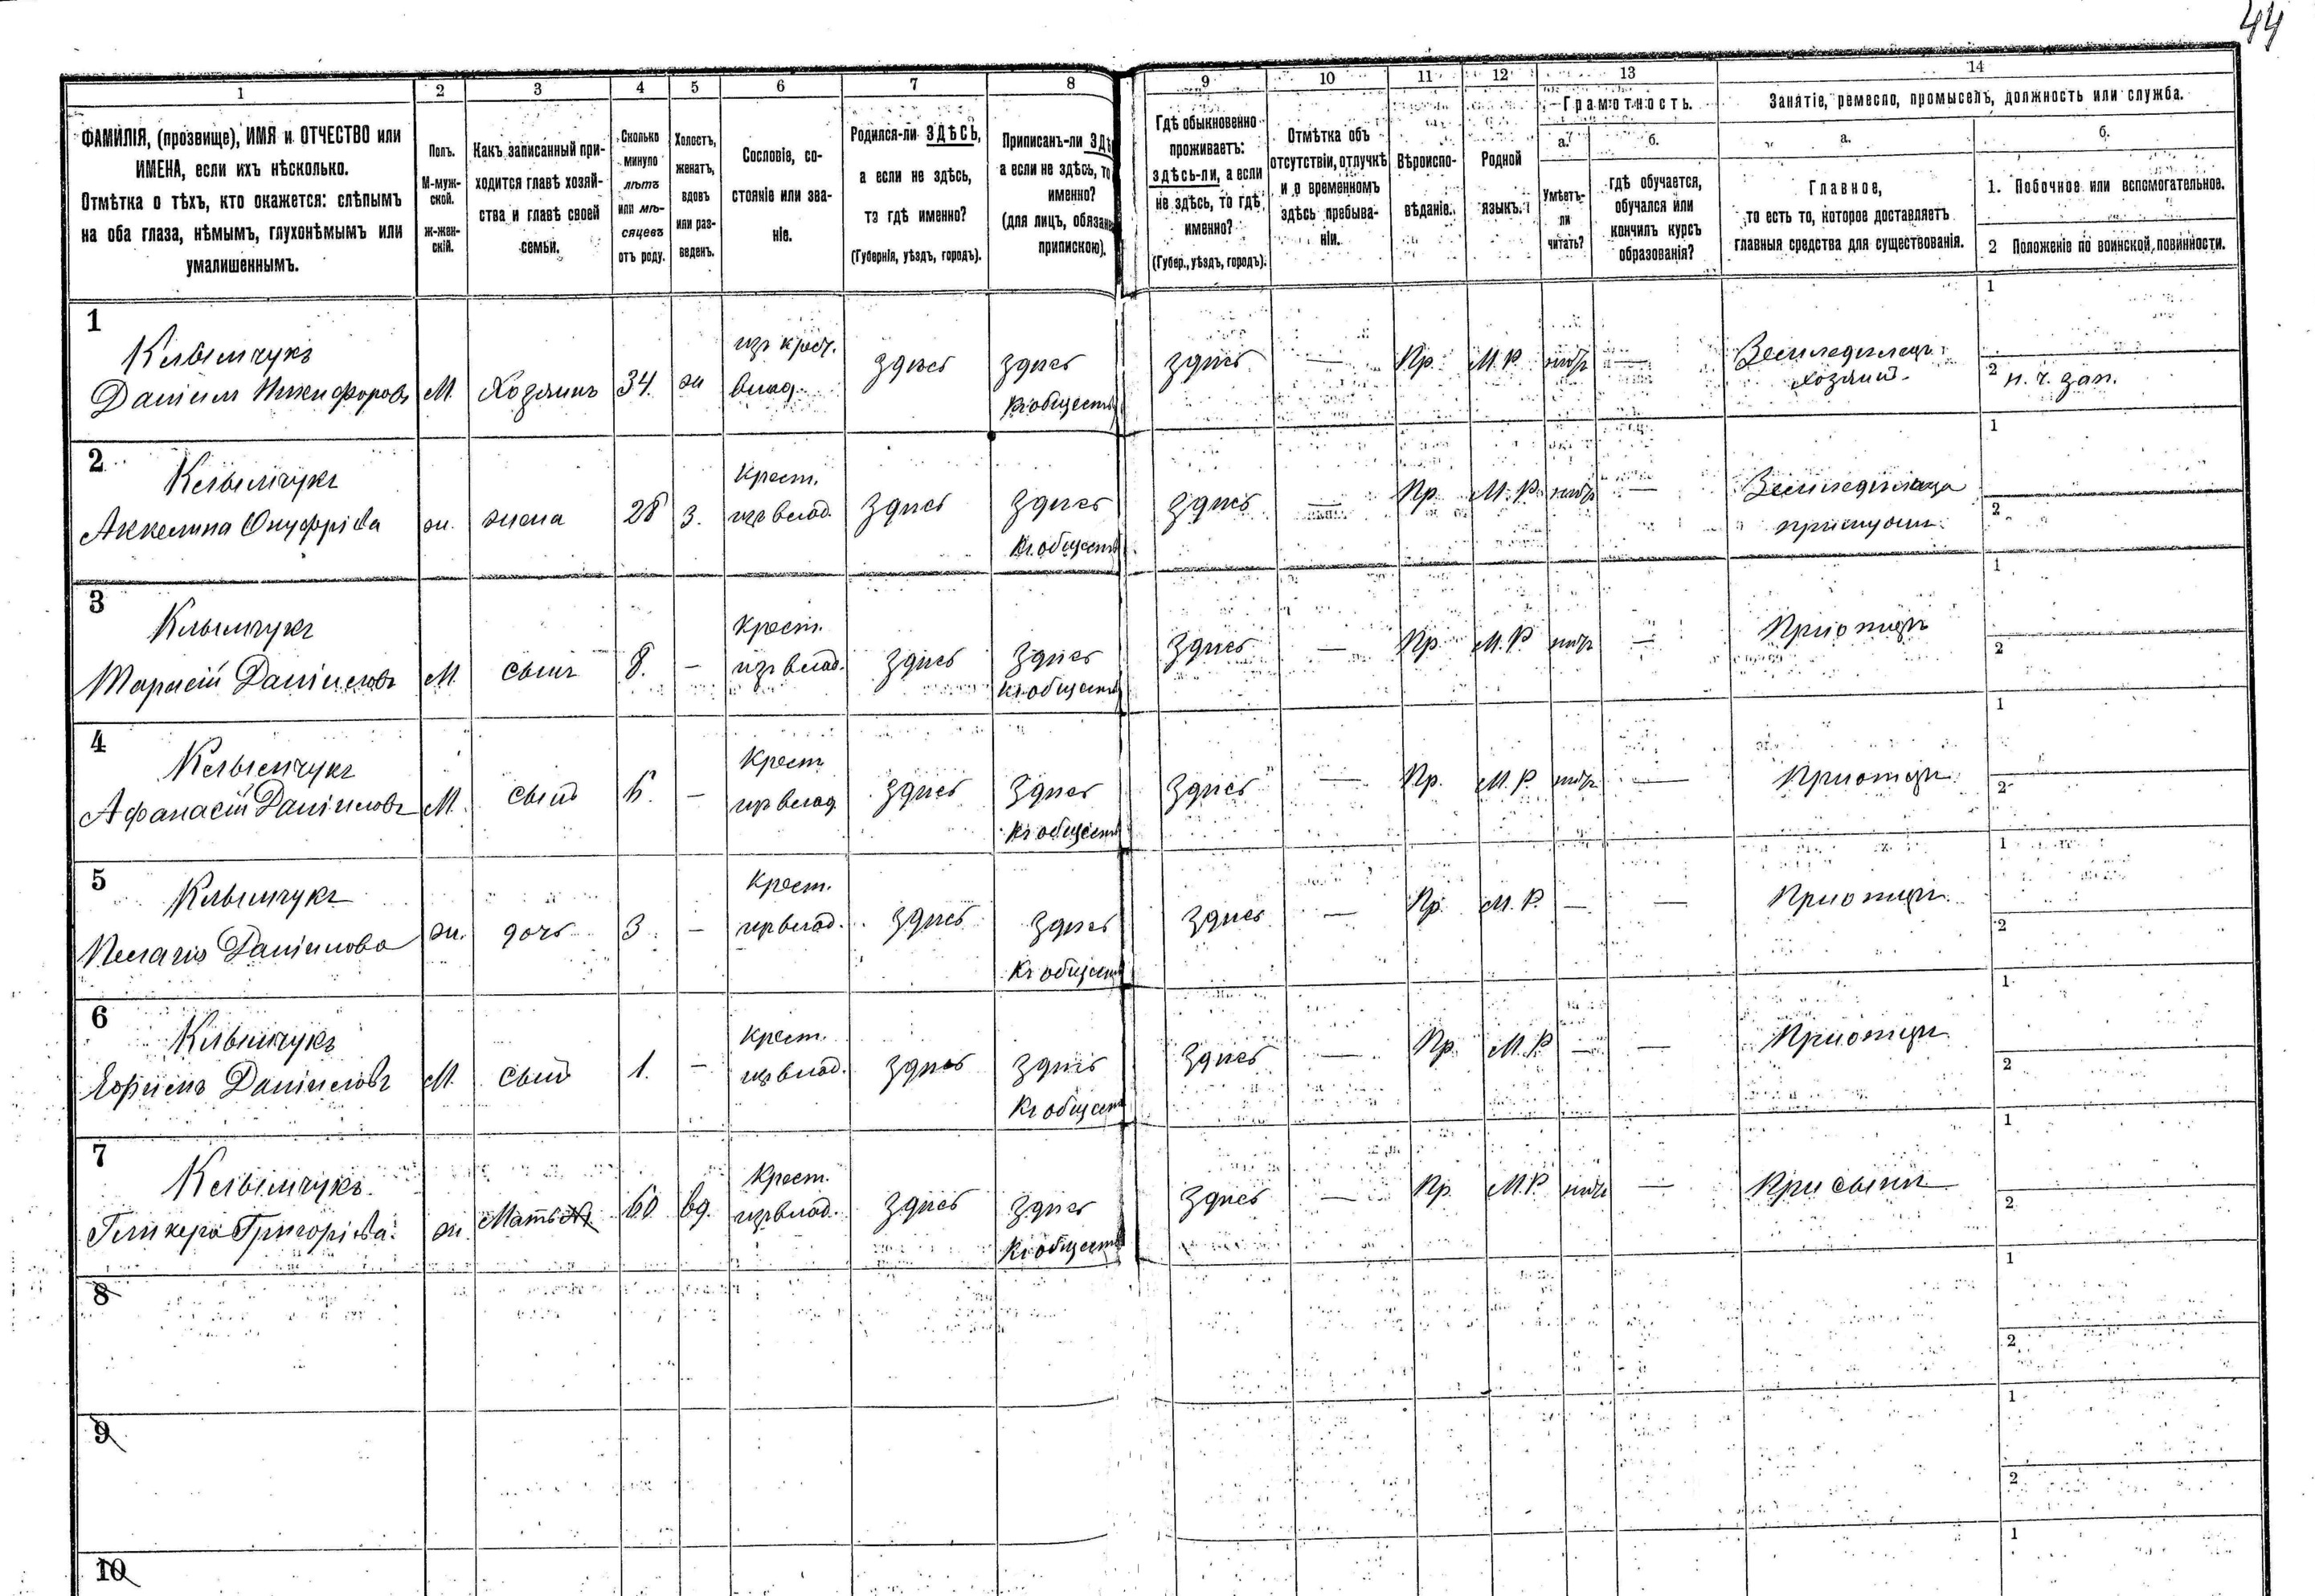 44
1 2 3 4 5 6 7 8 9 10 11 12 13 14
ФАМИЛІЯ, (прозвище), ИМЯ и ОТЧЕСТВО или
ИМЕНА, если ихъ нѣсколько.
Отмѣтка о тѣхъ, кто окажется: слѣпымъ
на оба глаза, нѣмымъ, глухонѣмымъ или
умалишеннымъ.
Полъ.
М-муж-
ской.
ж-жен-
скій.
Какъ записанный при-
ходится главѣ хозяй-
ства и главѣ своей
семьи.
Сколько
минуло
лѣтъ
или мѣ-
сяцевъ
отъ роду.
Холостъ,
женатъ,
вдовъ
или раз-
веденъ.
Сословіе, со-
стояніе или зва-
ніе.
Родился-ли ЗДѢСЬ,
а если не здѣсь,
то гдѣ именно?
(Губернія, уѣздъ, городъ).
Приписанъ-ли ЗДѢ
а если не здѣсь, то
именно?
(для лицъ, обязан
припискою).
Гдѣ обыкновенно
проживаетъ:
здѣсь-ли, а если
не здѣсь, то гдѣ
именно?
(Губер., уѣздъ, городъ).
Отмѣтка объ
отсутствіи, отлучкѣ
и о временномъ
здѣсь пребыва-
ніи.
Вѣроиспо-
вѣданіе.
Родной
языкъ.
Грамотность.
а.
Умѣетъ-
ли
читать?
б.
гдѣ обучается,
обучался или
кончилъ курсъ
образованія?
Занятіе, ремесло, промыселъ, должность или служба.
а.
Главное,
то есть то, которое доставляетъ
главныя средства для существованія.
б.
1. Побочное или вспомогательное.
2 Положеніе по воинской повинности.
1
Клымчукъ из крест. Земледѣлецъ 1
Даніилъ Никифоровъ М. Хозяинъ 34. ж влад. здѣсь здѣсь здѣсь — Пр. М. Р. нѣтъ — хозяинъ 2 н. ч. зап.
къ обществ
2
Клымчукъ Крест. Земледѣлица 1
Аккелина Онуфріева ж. жена 28 З. изъ влад. здѣсь здѣсь здѣсь — Пр. М. Р. нѣтъ — 2
къ обществ
3
Клымчукъ Крест. При отцѣ 1
Тарасій Даніиловъ М. сынъ 8. — изъ влад. здѣсь здѣсь здѣсь — Пр. М. Р нѣтъ — 2
къ обществ
4
Клымчукъ Крест При отцѣ 1
Афанасій Даніиловъ М. сынъ 6. — изъ влад. здѣсь здѣсь здѣсь — Пр. М. Р. нѣтъ — 2
къ обществ
5
Клымчукъ Крест. При отцѣ 1
Пелагія Даніилова ж. дочь 3. — изъ влад. здѣсь здѣсь здѣсь — Пр. М. Р. — — 2
къ обществ
6
Клымчукъ Крест. При отцѣ 1
Даніиловъ М. сынъ 1. — изъ влад. здѣсь здѣсь здѣсь — Пр. М. Р. — — 2
къ обществ
7
Клымчукъ Крест. При сынѣ 1
Гликера Григоріева ж. Мать 60 вд. изъ влад. здѣсь здѣсь здѣсь — Пр. М. Р. нѣтъ — 2
къ обществ
8 1
2
9 1
2
10 1